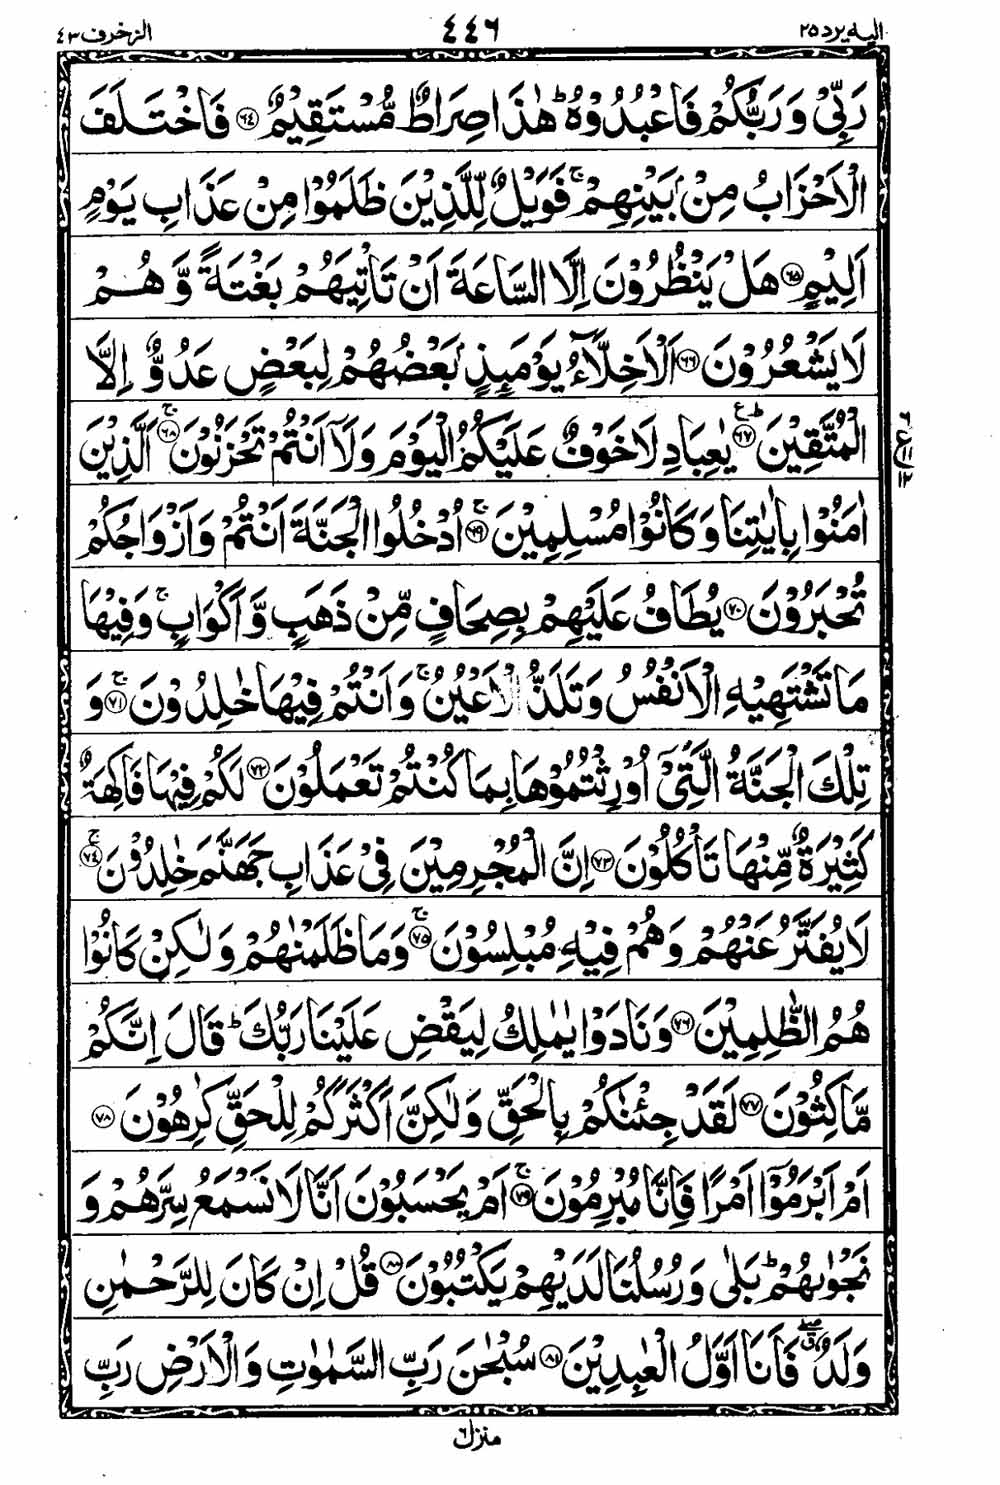 اليه يرد ٢٥ ٤٤٦ الزخرف ٤٣
رَبِّيْ وَرَبُّكُمْ فَاعْبُدُوْهُ ؕ هٰذَا صِرَاطٌ مُّسْتَقِيْمٌ ﴿٦٤﴾ فَاخْتَلَفَ
الْاَحْزَابُ مِنْۢ بَيْنِهِمْ ۚ فَوَيْلٌ لِّلَّذِيْنَ ظَلَمُوْا مِنْ عَذَابِ يَوْمٍ
اَلِيْمٍ ﴿٦٥﴾ هَلْ يَنْظُرُوْنَ اِلَّا السَّاعَةَ اَنْ تَاْتِيَهُمْ بَغْتَةً وَّ هُمْ
لَا يَشْعُرُوْنَ ﴿٦٦﴾ اَلْاَخِلَّآءُ يَوْمَىِٕذٍۭ بَعْضُهُمْ لِبَعْضٍ عَدُوٌّ اِلَّا
الْمُتَّقِيْنَ ﴿٦٧﴾ ؕ ع يٰعِبَادِ لَا خَوْفٌ عَلَيْكُمُ الْيَوْمَ وَلَاۤ اَنْتُمْ تَحْزَنُوْنَ ﴿٦٨﴾ ۚ اَلَّذِيْنَ
٦ ع ١١ ١٢
اٰمَنُوْا بِاٰيٰتِنَا وَ كَانُوْا مُسْلِمِيْنَ ﴿٦٩﴾ ۚ اُدْخُلُوا الْجَنَّةَ اَنْتُمْ وَ اَزْوَاجُكُمْ
تُحْبَرُوْنَ ﴿٧٠﴾ يُطَافُ عَلَيْهِمْ بِصِحَافٍ مِّنْ ذَهَبٍ وَّ اَكْوَابٍ ۚ وَ فِيْهَا
مَا تَشْتَهِيْهِ الْاَنْفُسُ وَ تَلَذُّ الْاَعْيُنُ ۚ وَ اَنْتُمْ فِيْهَا خٰلِدُوْنَ ﴿٧١﴾ ۚ وَ
تِلْكَ الْجَنَّةُ الَّتِيْۤ اُوْرِثْتُمُوْهَا بِمَا كُنْتُمْ تَعْمَلُوْنَ ﴿٧٢﴾ لَكُمْ فِيْهَا فَاكِهَةٌ
كَثِيْرَةٌ مِّنْهَا تَاْكُلُوْنَ ﴿٧٣﴾ اِنَّ الْمُجْرِمِيْنَ فِيْ عَذَابِ جَهَنَّمَ خٰلِدُوْنَ ﴿٧٤﴾ ۚ
لَا يُفَتَّرُ عَنْهُمْ وَ هُمْ فِيْهِ مُبْلِسُوْنَ ﴿٧٥﴾ ۚ وَ مَا ظَلَمْنٰهُمْ وَ لٰكِنْ كَانُوْا
هُمُ الظّٰلِمِيْنَ ﴿٧٦﴾ وَ نَادَوْا يٰمٰلِكُ لِيَقْضِ عَلَيْنَا رَبُّكَ ؕ قَالَ اِنَّكُمْ
مّٰكِثُوْنَ ﴿٧٧﴾ لَقَدْ جِئْنٰكُمْ بِالْحَقِّ وَ لٰكِنَّ اَكْثَرَكُمْ لِلْحَقِّ كٰرِهُوْنَ ﴿٧٨﴾
اَمْ اَبْرَمُوْۤا اَمْرًا فَاِنَّا مُبْرِمُوْنَ ﴿٧٩﴾ ۚ اَمْ يَحْسَبُوْنَ اَنَّا لَا نَسْمَعُ سِرَّهُمْ وَ
نَجْوٰىهُمْ ؕ بَلٰى وَ رُسُلُنَا لَدَيْهِمْ يَكْتُبُوْنَ ﴿٨٠﴾ قُلْ اِنْ كَانَ لِلرَّحْمٰنِ
وَلَدٌ ۖ ق فَاَنَا اَوَّلُ الْعٰبِدِيْنَ ﴿٨١﴾ سُبْحٰنَ رَبِّ السَّمٰوٰتِ وَ الْاَرْضِ رَبِّ
منزل ٦